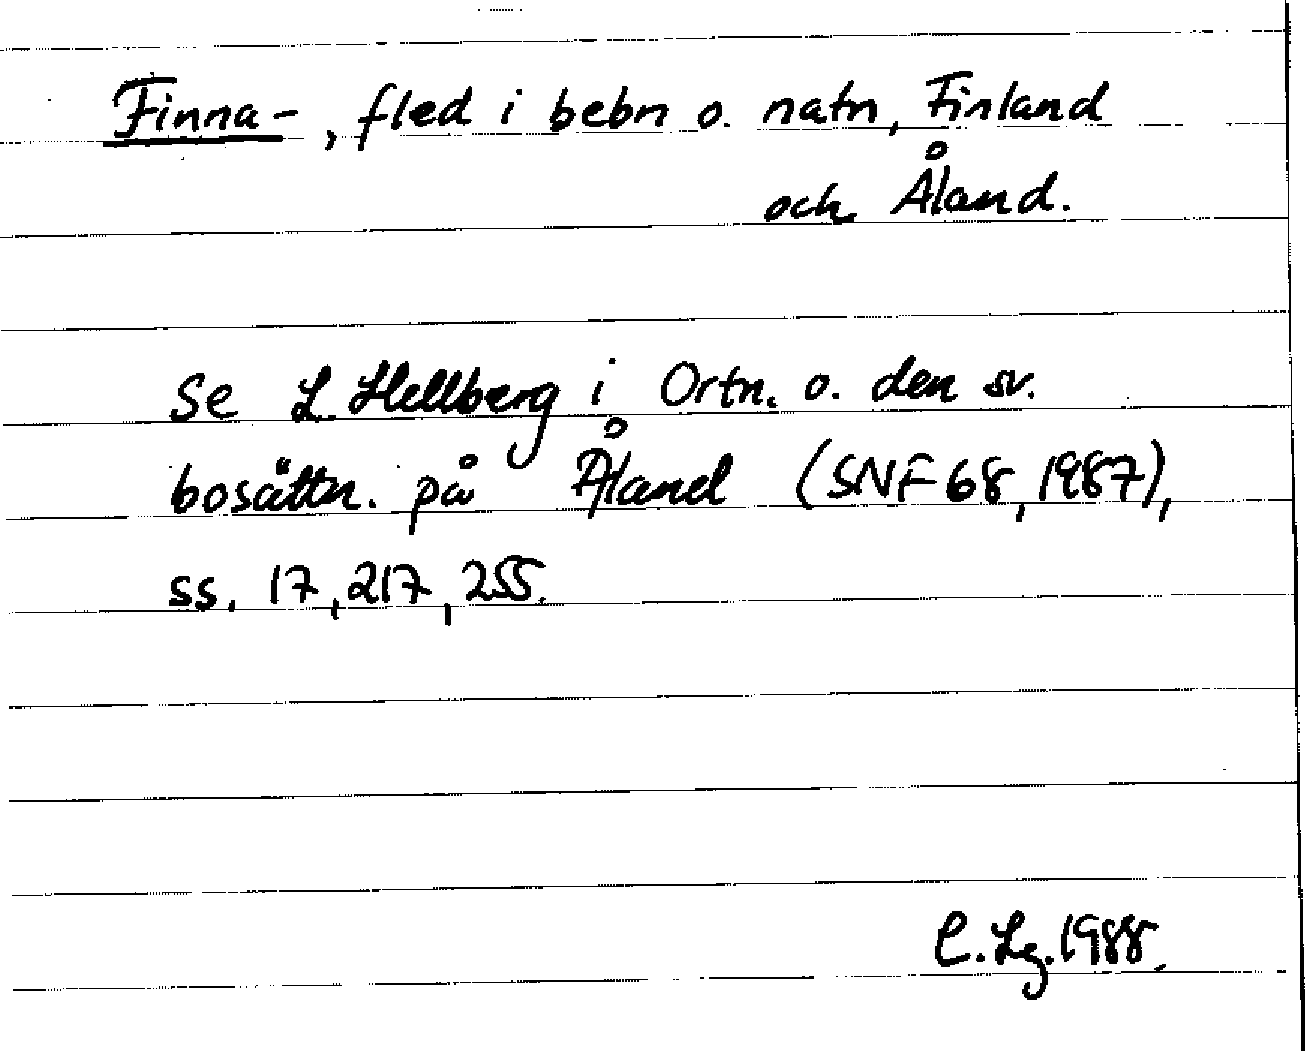 Finna-, fled i bebn o. natn, Finland
och Åland.
Se L. Hellberg i Ortn. o. den sv.
bosättn. på Åland (SNF 68, 1987),
ss. 17, 217, 255.
C. Lg. 1988.